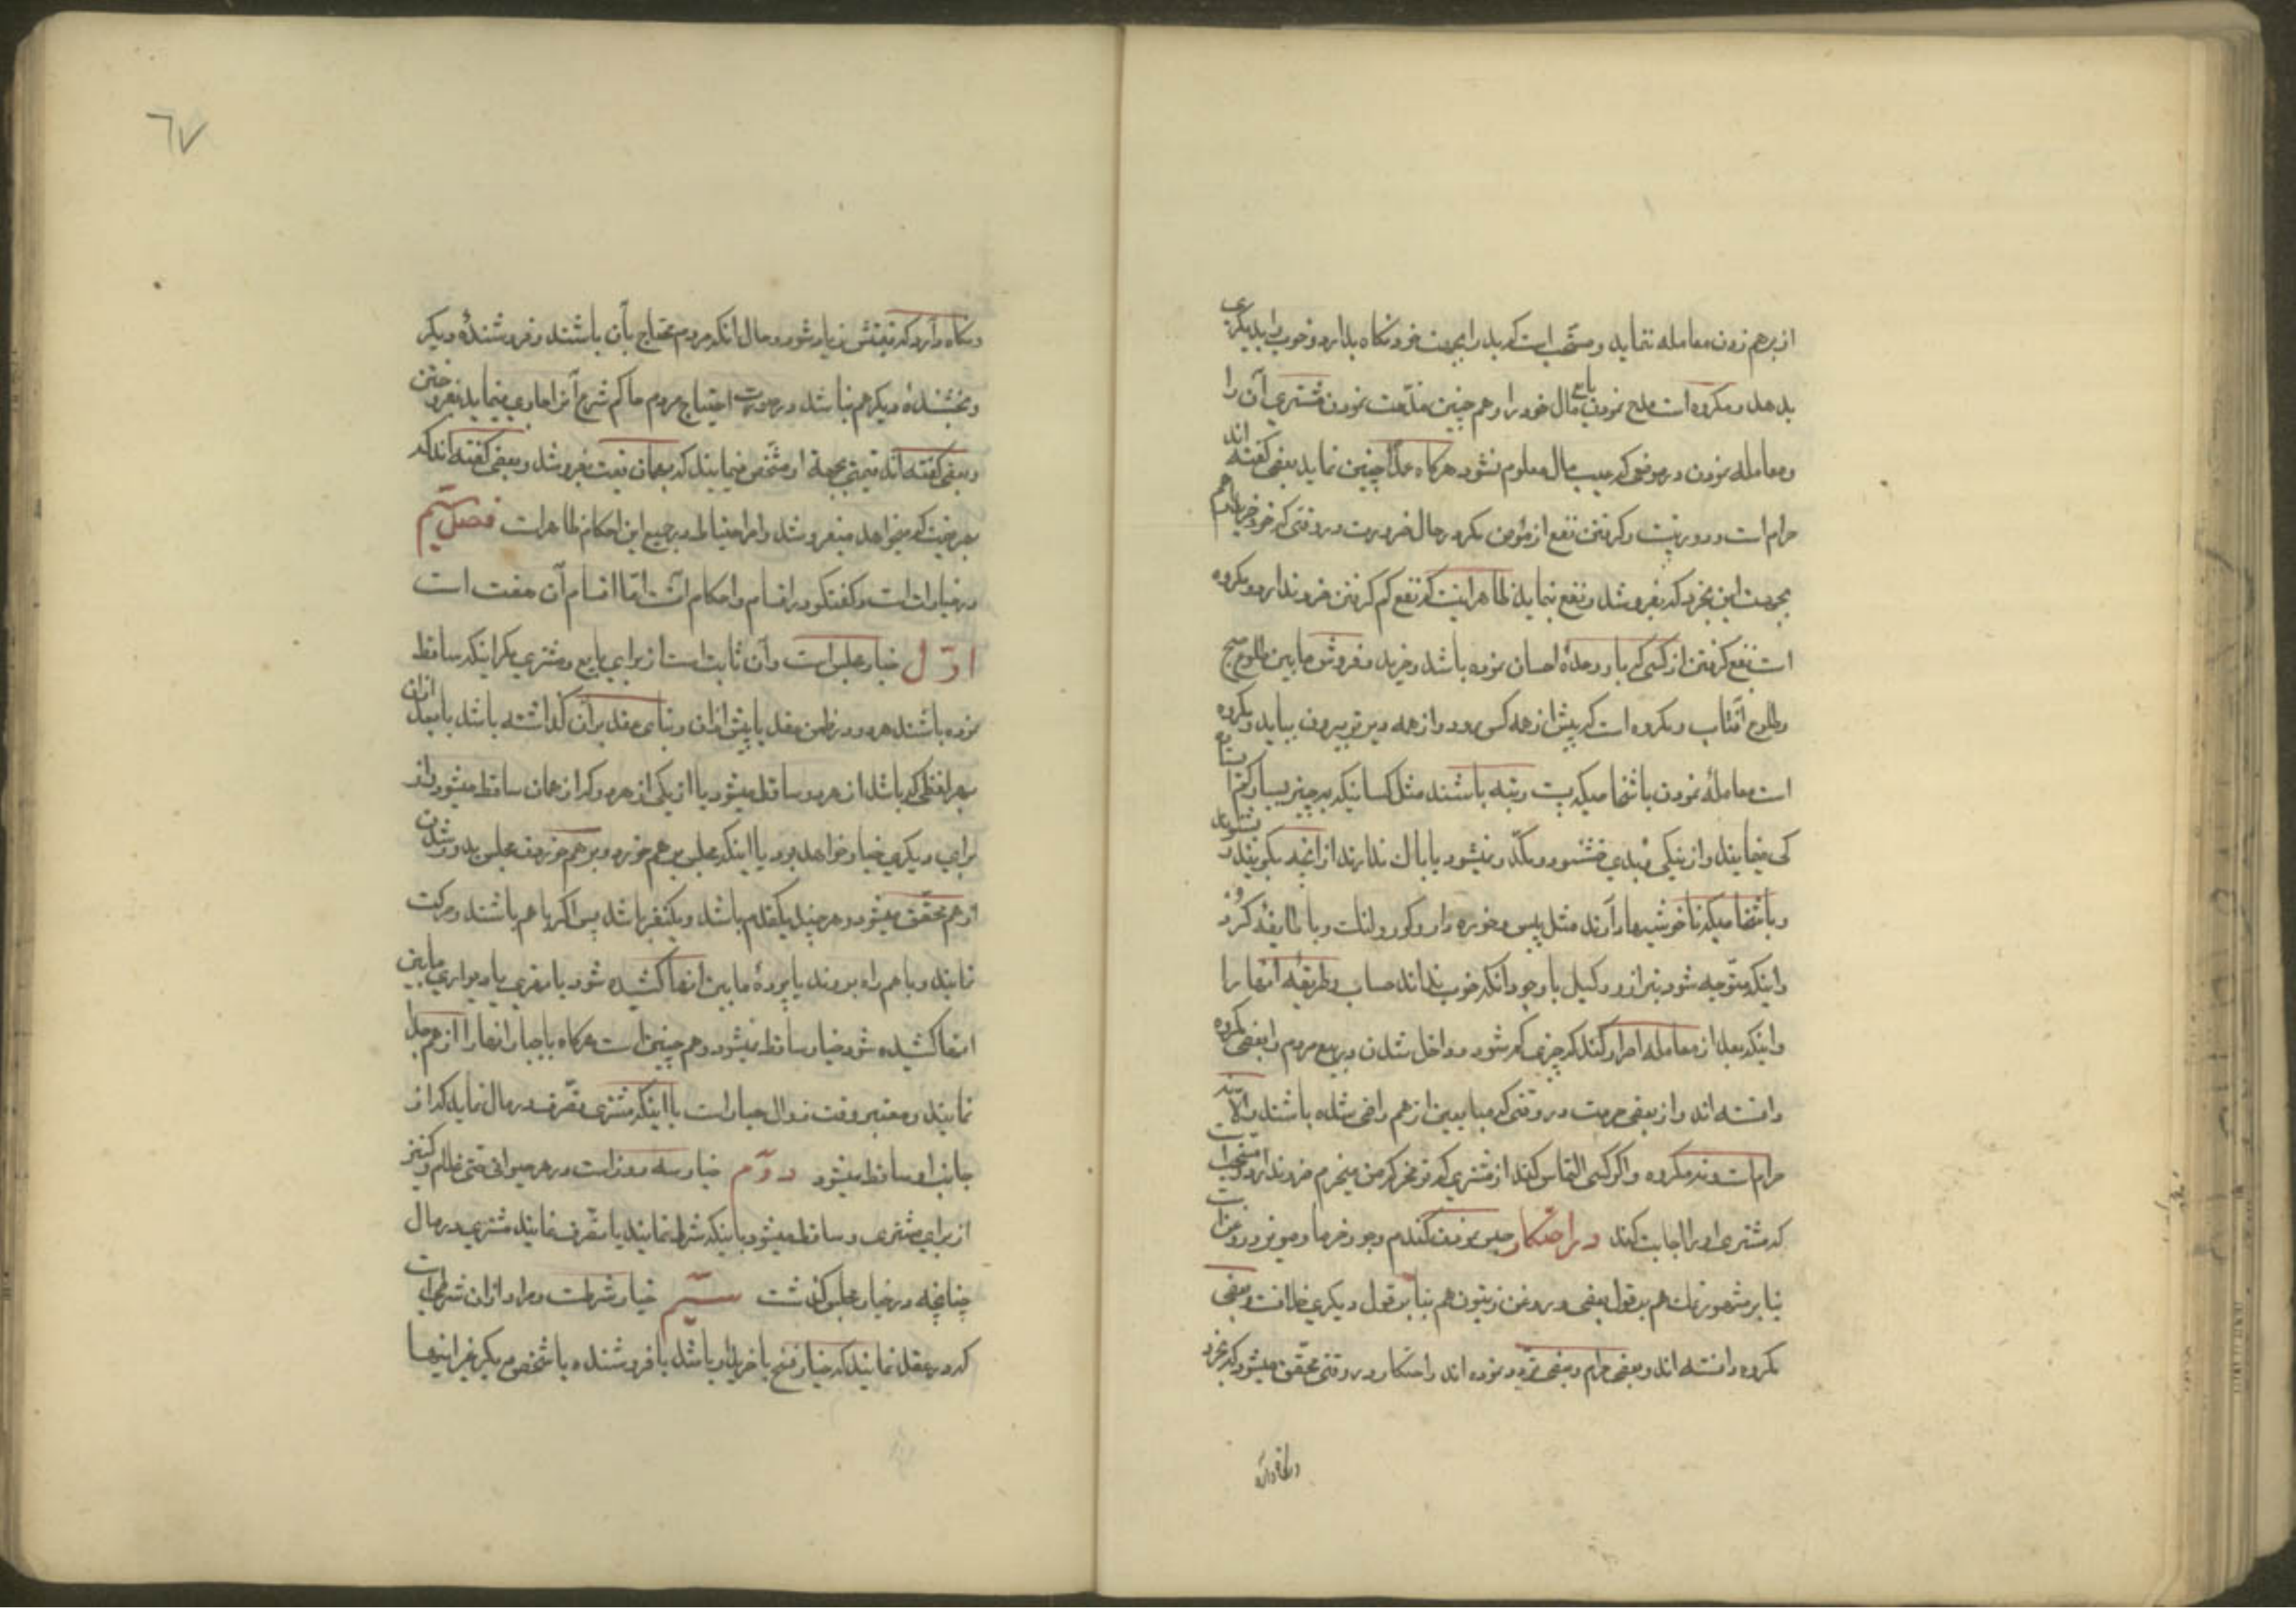 از برهم زدن معامله ننماید و مستحب است که بد را بجهت خود نگاه بدارد و خوب را بدیگری
بدهد و مکروه است مدح نمودن بایع مال خود را و هم چنین مذمت نمودن مشتری آن را
و معامله نمودن در موضعی که عیب مال معلوم نشود هرگاه عمداً چنین نماید بعضی گفته اند
حرام است و دور نیست و گرفتن نفع از مؤمن مگر در حال ضرورت و در وقتی که خود خریدار هم
بجهت این بخرد که بفروشد و نفع بنماید ظاهر اینست که نفع کم گرفتن ضرر ندارد و مکروه
است نفع گرفتن از کسی که باو وعدهٔ احسان نموده باشد و خرید و فروش مابین طلوع صبح
و طلوع آفتاب و مکروه است که پیش از همه کس رود و از همه دیرتر بیرون بیاید و مکروه
است معامله نمودن باشخاصیکه پست رتبه باشند مثل کسانیکه بر چیز بسیار کم
کمی مینمایند و از نیکی و بدی خشنود و مکدر نمیشود یا باک ندارند از آنچه بگویند و بشنوند
و باشخاصیکه ناخوشیها دارند مثل پیس و خوره دار و کور و لنگ و با طایفهٔ کرد
و اینکه متوجه شود ترازو و کیل با وجود آنکه خوب نداند حساب و طریقهٔ آنها را
و اینکه بعد از معامله اصرار کند که چیزی کم شود و داخل شدن در بیع مردم و بعضی مکروه
دانسته اند و از بعضی حرمت در وقتی که متبایعین از هم راضی شده باشند و الا نه
حرام است و نه مکروه و اگر کسی التماس کند از مشتری که تو مخر که من میخرم ضرر ندارد و مستحب است
که مشتری او را اجابت کند در احتکار حبس نمودن گندم و جو و خرما و مویز و روغن است
بنا بر مشهور نمک هم بر قول بعضی و روغن زیتون هم بنا بر قول دیگری خلافست بعضی
مکروه دانسته اند و بعضی حرام و بعضی تردد نموده اند و احتکار در وقتی محقق میشود که بخرد
و نگاه دارد
٦٧
و نگاه دارد که قیمتش زیاد شود و حال انکه مردم محتاج بآن باشند و فروشندهٔ دیگر
و بخشندهٔ دیگر هم نباشد در صورت احتیاج مردم حاکم شرع آنرا اجباری مینماید بفروختن
و بعضی گفته اند قیمتی بجهة او مشخص مینمایند که بهمان قیمت بفروشد و بعضی گفته اند که
بهر قیمت که میخواهد میفروشد و امر احتیاط در جمیع این احکام ظاهر است فصل سیم
در خیارات است و گفتگو در اقسام و احکام آنست امّا اقسام آن هفت است
اوّل خیار مجلس است و آن ثابت است از برای بایع و مشتری مگر اینکه ساقط
نموده باشند هر دو در ضمن عقد یا پیش از آن و بنای عقد بر آن گذاشته باشد یا بعد از آن
بهر لفظی که باشد از هر دو ساقط میشود یا از یکی از هر دو که از همان ساقط میشود و از
برای دیگری خیار خواهد بود یا اینکه مجلس بر هم خورد و بر هم خوردن مجلس بدور شدن
از هم محقق میشود و هر چند یکقدم باشد و یکنفر باشد پس اگر با هم باشند و حرکت
نمایند و با هم راه بروند یا پردهٔ مابین آنها کشیده شود یا نهری یا دیواری مابین
انها کشیده شود خیار ساقط نمیشود و هم چنین است هرگاه باجبار انها را از هم جدا
نمایند و معتبر وقت زوال جبار است یا اینکه مشتری تصرف در مال نماید که از
جانب او ساقط میشود دوّم خیار سه روز است در هر حیوانی حتی غلام و کنیز
از برای مشتری و ساقط میشود باینکه شرط نمایند یا تصرف نمایند مشتری در مال
چنانچه در خیار مجلس گذشت سیّم خیار شرطست و مراد از آن شرطی است
که در عقد نمایند که خیار فسخ با خریدار باشد یا فروشنده یا شخص دیگر غیر اینها